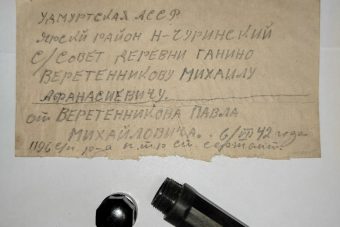 УДМУРТСКАЯ АССР
ЯРСКИЙ РАЙОН Н-ЧУРИНСКИЙ
С/СОВЕТ ДЕРЕВНИ ГАНИНО
ВЕРЕТЕННИКОВУ МИХАИЛУ
АФАНАСИЕВИЧУ.
от ВЕРЕТЕННИКОВА ПАВЛА
МИХАЙЛОВИЧА. 6/VII 42 года
1196 с/п р-а п.т.р ст. сержант.